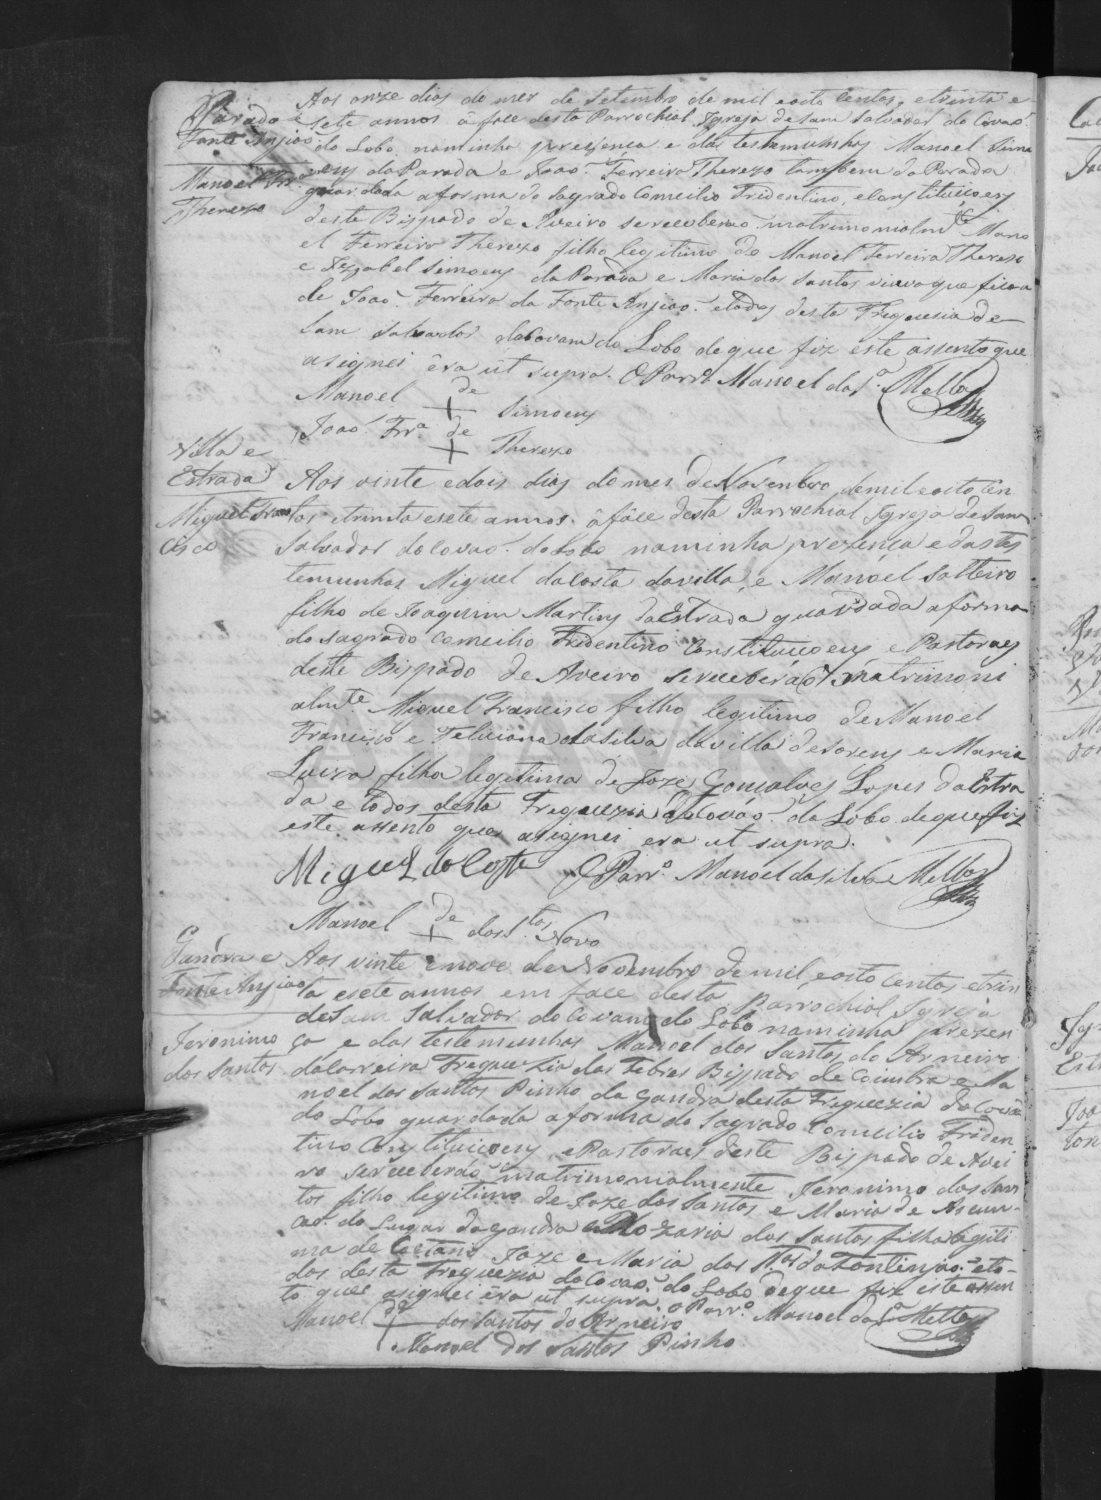 Parada e
Fonte Anjiaõ
Manoel Frrª
Therezo
Aos onze dias do mes de Setembro de mil eoito Centos, etrinta e
sete annos â face desta Parrochial Igreja deSam Salvador do Covaõ
do Lobo naminha prezença e das testemunhas Manoel Simo
ens da Parada e Joaõ Ferreira Therezo tambem da Parada
guardada aforma do Sagrado Comcilio Tridentino, eConstituicoens
deste Bispado de Aveiro sereceberaõ matrimonialmte Mano
el Ferreira Therezo filho legitimo de Manoel Ferreira Therezo
e Izabel Simoens da Parada e Maria dos Santos viuva que ficou
de Joaõ Ferreira da Fonte Anjiaõ etodos desta Freguesia de
Sam Salvador doCovam do Lobo deque fiz este assento que
asignei êra ut supra. O Parrº Manoel da Sª Mello
Manoel de Simoens
Joaõ Frrª de Therezo
Villa e
Estrada
Miguel Fran
cisco
Aos vinte edois dias domes deNovenbro demil eoito Cen
tos etrinta esete annos âfâce desta Parrochial Igreja deSam
Salvador doCovaõ doLobo naminha prezença edastes
temunhas Miguel daCosta davilla, e Manoel Salteiro
filho de Joaquim Martins daEstrada guardada aforma
do sagrado comcilio Tridentino Constituicoens e Pastoraes
deste Bispado de Aveiro sereceberaõ matrimoni
almte Miguel Francisco filho legitimo deManoel
Francisco e Feliciana daSilva davilla deSorens e Maria
Luiza filha legitima de Joze Gonsalves Lopes daEstra
da e todos desta Freguezia doCovaõ do Lobo dequefiz
este assento que asignei era ut supra.
Miguel da Costa O Parrº Manoel daSilva Mello
Manoel de dos Stos Novo
Gandra e
Fonte Anjiaõ
Jeronimo
dos Santos
Aos vinte enove de Novembro de mil eoito Centos etrin
ta esete annos em face desta Parrochial Igreja
deSam Salvador do Covam do Lobo naminha prezen
ça e das testemunhas Manoel dos Santos do Arneiro
daCorreira Freguezia das Febres Bispado de Coimbra e Ma
noel dos Santos Pinho da Gandra desta Freguezia do Covaõ
do Lobo guardada aforma do Sagrado Comcilio Triden
tino Constituicoens, ePastoraes deste Bispado de Avei
ro sereceberaõ matrimonialmente Jeronimo dos San
tos filho legitimo de Joze dos Santos e Maria de Asum-
caõ do Lugar dagandra e Rozaria dos Santos filha legiti
ma de Caetano Joze e Maria dos Stos daFontinjiaõ eto-
dos desta Freguezia doCovaõ do Lobo deque fiz este assen
to que asignei êra ut supra. O Parrº Manoel da Sª Mello
Manoel de dos Santos do Arneiro
Manoel dos Santos Pinho